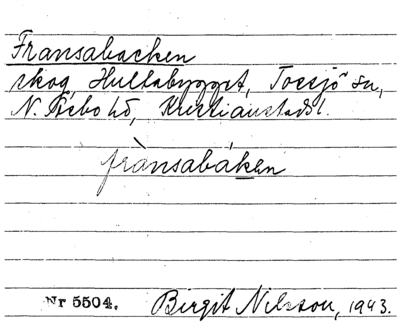 Fransabacken
skog, Hultabygget, Tossjö sn,
N. Åsbo hd, Kristianstads l.
frànsabáken
Nr 5504. Birgit Nilsson, 1943.